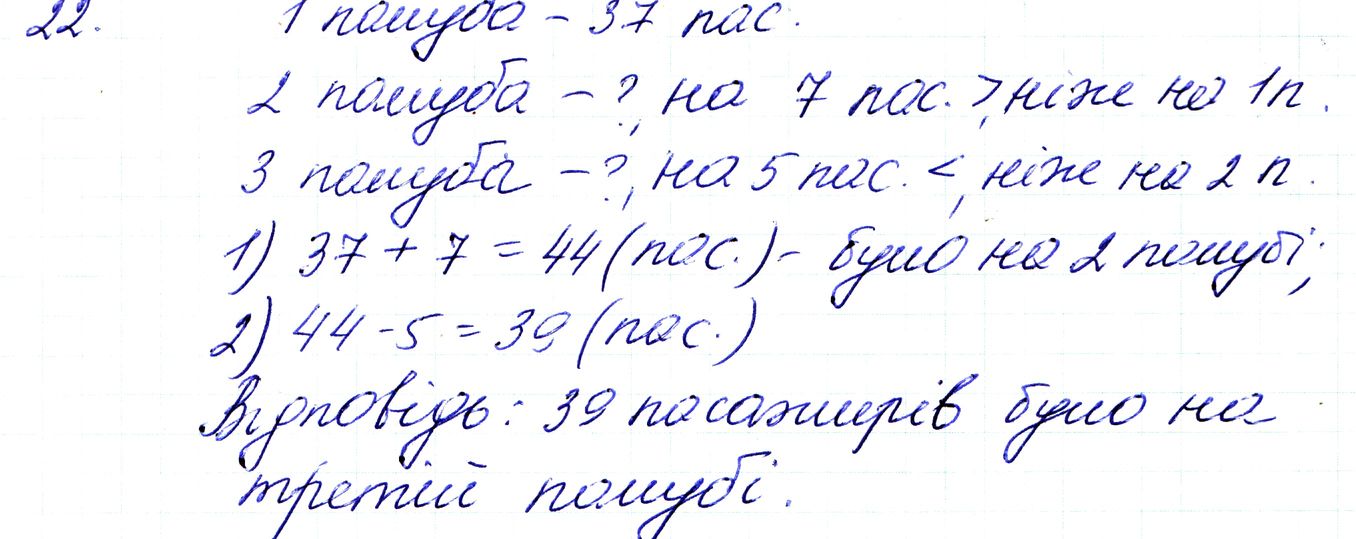 22. 1 палуба – 37 пас.
2 палуба – ?, на 7 пас. >, ніж на 1 п.
3 палуба – ?, на 5 пас. <, ніж на 2 п.
1) 37 + 7 = 44 (пас.) – було на 2 палубі;
2) 44 - 5 = 39 (пас.)
Відповідь: 39 пасажирів було на
третій палубі.